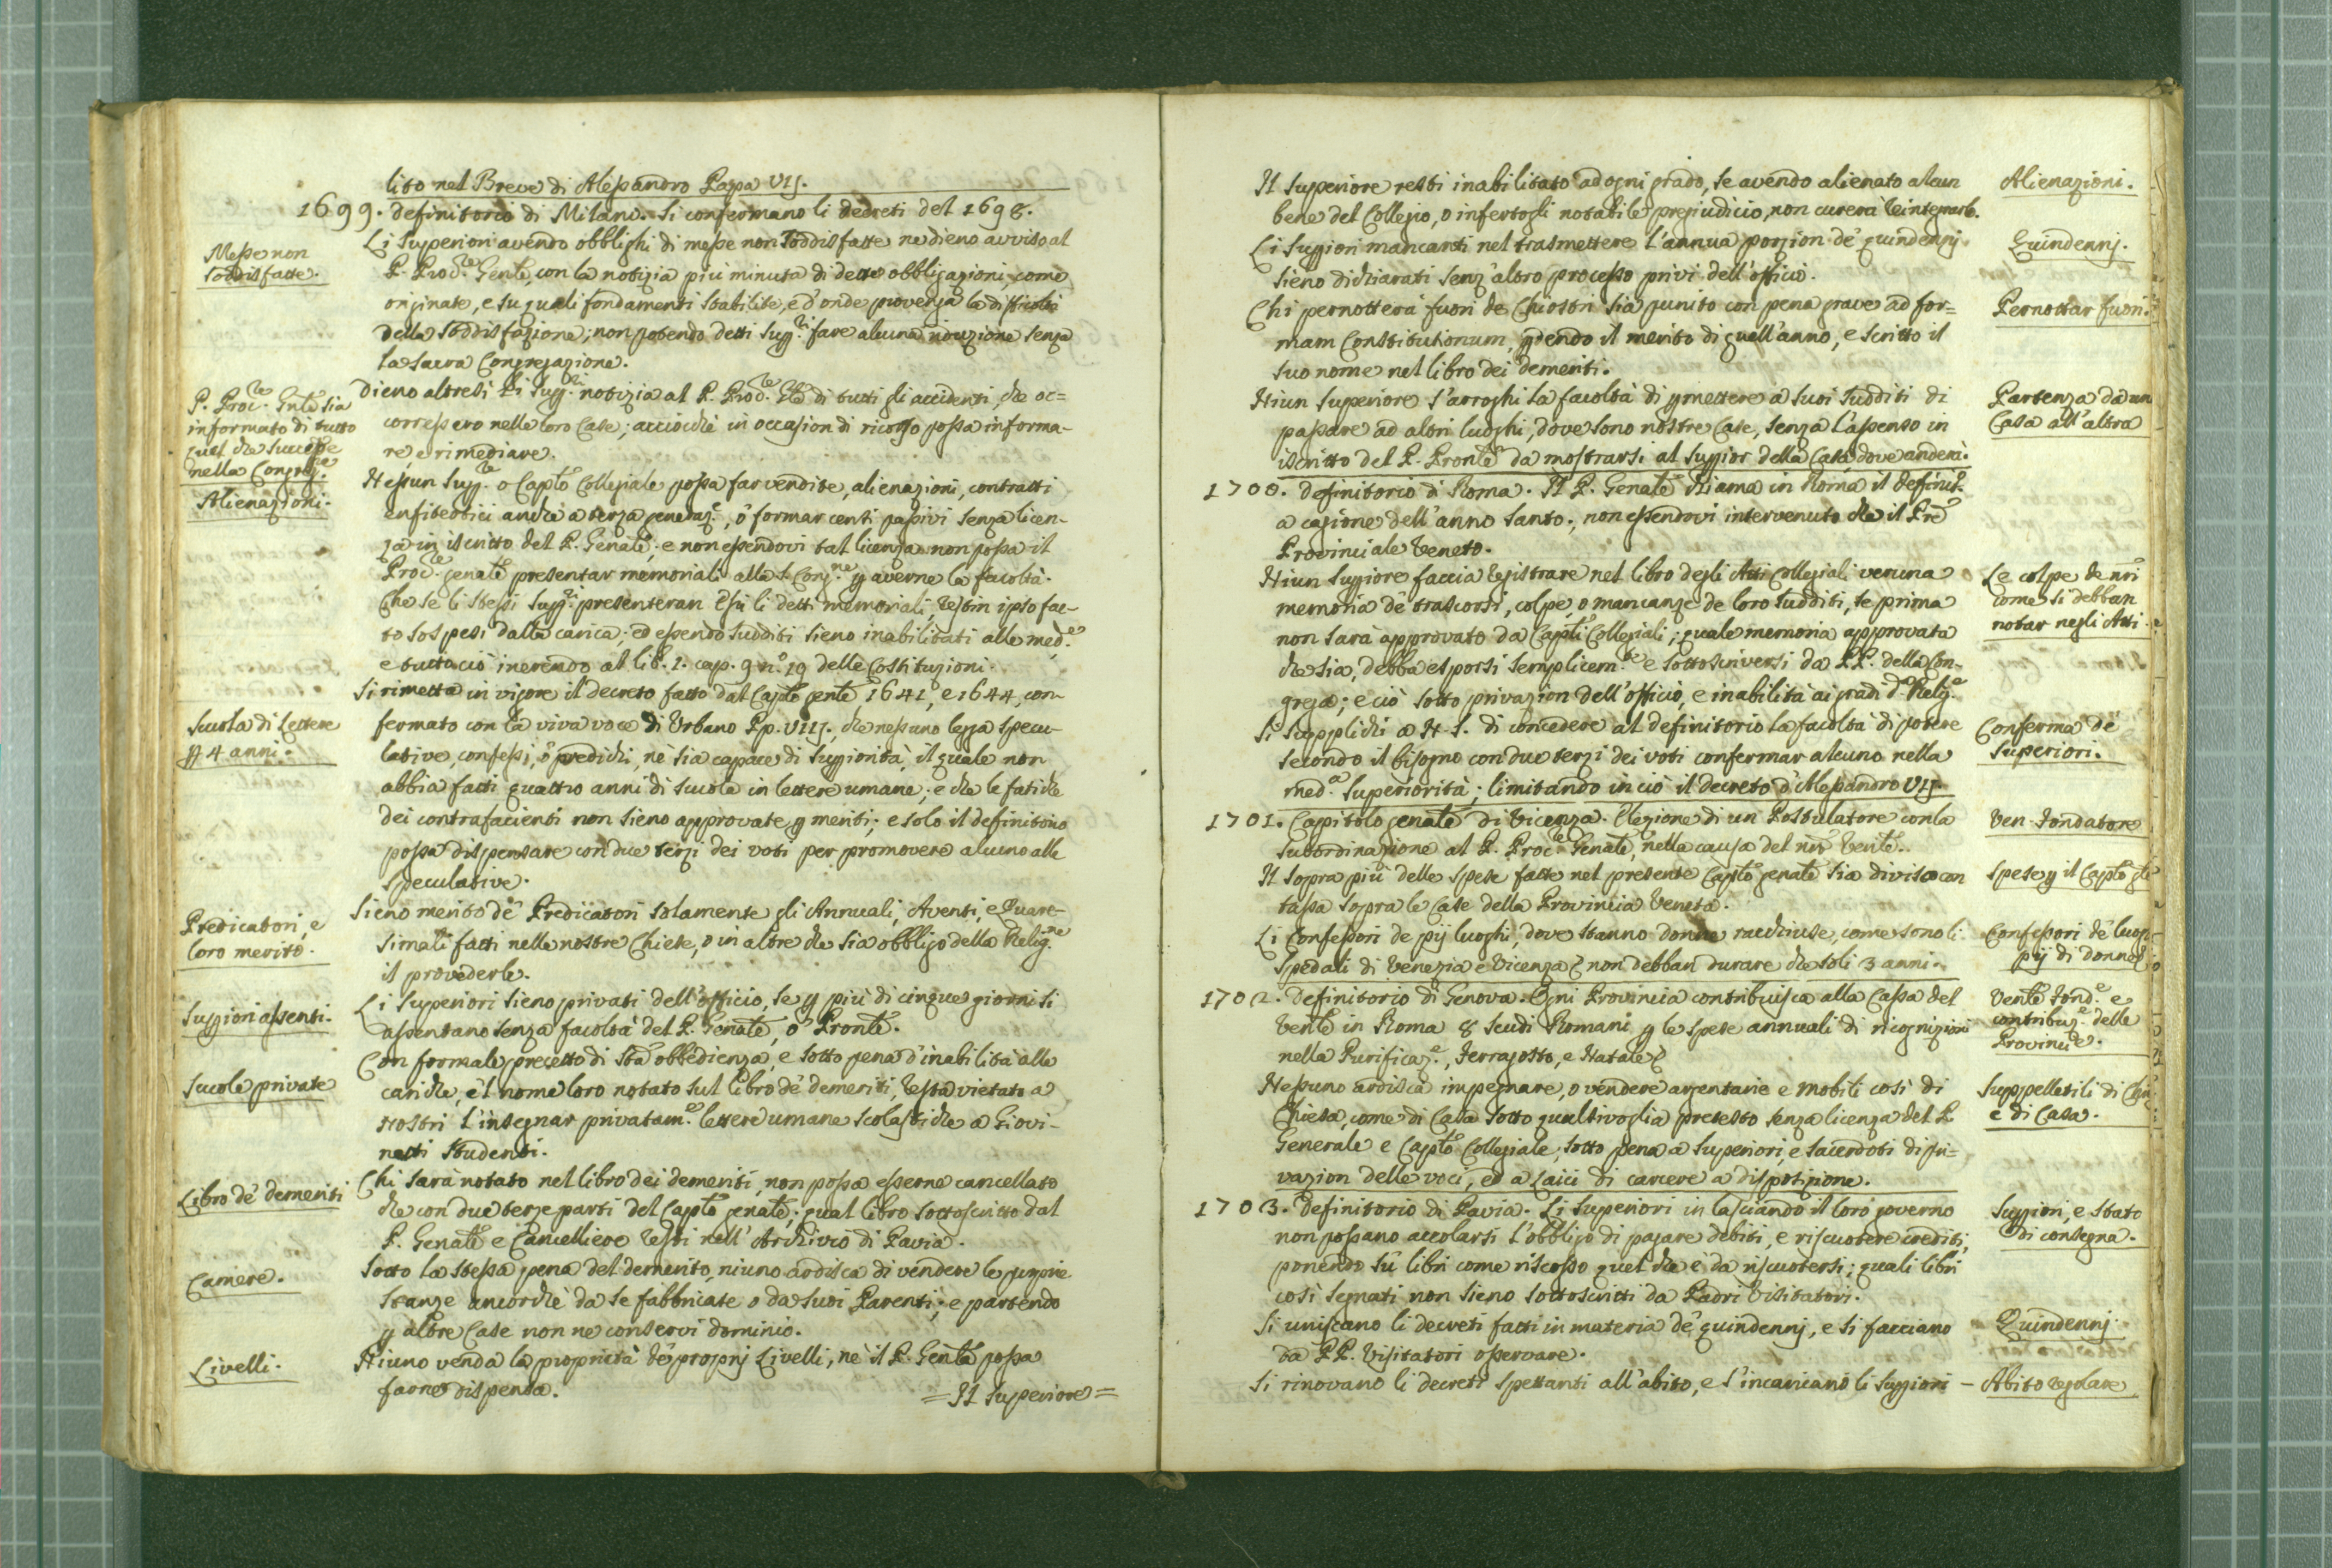 lito nel Breve di Alessandro Papa VII.
1699. Definitorio di Milano. Si confermano li decreti del 1698.
Messe non
soddisfatte.
Li Superiori avendo obblighi di messe non soddisfatte ne dieno avviso al
P. Proc.re Genle, con la notizia più minuta di dette obbligazioni, come
originate, e su quali fondamenti stabilite, e d'onde provenga la difficoltà
della soddisfazione; non potendo detti Supp.ri fare alcuna riduzione senza
la Sacra Congregazione.
P. Proc.re Gnle sia
informato di tutto
quel che succede
nella Congreg.ne
Dieno altresì li Supp.ri notizia al P. Proc.re Gle di tutti gli accidenti, che oc=
corressero nelle loro Case; acciochè in occasion di ricorso possa informa-
re, e rimediare.
Alienazioni.
Nessun Supp.re o Caplo Collegiale possa far vendite, alienazioni, contratti
enfiteotici anche a terza generaz.e, o formar censi passivi senza licen-
za in iscritto del P. Genale; e non essendovi tal licenza non possa il
Proc.re genale presentar memoriali alla S. Cong.ne p averne la facoltà.
Che se li stessi Supp.ri presenteran essi li detti memoriali, restin ipso fac-
to sospesi dalla carica; ed essendo sudditi sieno inabilitati alle med.e
e tutto ciò inerendo al lib. 1. cap. 9 n.o 19 delle Costituzioni.
Scuola di Lettere
p 4 anni.
Si rimetta in vigore il decreto fatto dal Caplo genle 1641, e 1644, con-
fermato con la viva voce di Urbano Pp. VIII., che nessuno legga specu-
lative, confessi, o predichi, nè sia capace di Suppiorità, il quale non
abbia fatti quattro anni di scuola in lettere umane; e che le fatiche
dei contrafacienti non sieno approvate p meriti; e solo il definitorio
possa dispensare con due terzi dei voti per promovere alcuno alle
speculative.
Predicatori, e
loro merito.
Sieno merito de' Predicatori solamente gli Annuali, Aventi, e Quare-
simali fatti nelle nostre Chiese, o in altre che sia obbligo della Relig.ne
il provederle.
Suppiori assenti.
Li Superiori sieno privati dell'officio, se p più di cinque giorni si
assentano senza facoltà del P. Genale, o Pronle.
Scuole private
Con formale precetto di Sta obbedienza, e sotto pena d'inabilità alle
cariche, e 'l nome loro notato sul libro de' demeriti, resta vietato a
nostri l'insegnar privatam.e lettere umane scolastiche a Giovi-
netti studenti.
Libro de' demeriti
Chi sarà notato nel libro dei demeriti, non possa esserne cancellato
che con due terze parti del Caplo genale; qual libro sottoscritto dal
P. Genale e Cancelliere resti nell'Archivio di Pavia.
Camere.
Sotto la stessa pena del demerito, niuno ardisca di vendere le proprie
stanze ancorchè da se fabbricate o da suoi Parenti; e partendo
p altre Case non ne conservi dominio.
Livelli.
Niuno venda la proprietà de' proprj Livelli, nè il P. Genle possa
farne dispensa.
= Il Superiore =
Il Superiore resti inabilitato ad ogni grado, se avendo alienato alcun
bene del Collegio, o infertogli notabile pregiudicio, non curerà reintegrarlo.
Alienazioni.
Li Suppiori mancanti nel trasmettere l'annua porzion de' quindennj
sieno dichiarati senz'altro processo privi dell'officio.
Quindennj.
Chi pernotterà fuori de Chiostri sia punito con pena grave ad for=
mam Constitutionum, pdendo il merito di quell'anno, e scritto il
suo nome nel libro dei demeriti.
Pernottar fuori.
Niun Superiore s'arroghi la facoltà di pmettere a suoi sudditi di
passare ad altri luoghi, dove sono nostre Case, senza l'assenso in
iscritto del P. Pronle da mostrarsi al Suppior della Casa, dove anderà.
Partenza da una
Casa all'altra
1700. Definitorio di Roma. Il P. Genale chiama in Roma il definit.o
a cagione dell'anno santo; non essendovi intervenuto che il Pre
Provinciale Veneto.
Niun Suppiore faccia registrare nel libro degli Atti Collegiali veruna
memoria de trascorsi, colpe, o mancanze de loro sudditi, se prima
non sarà approvato da Capli Collegiali; quale memoria approvata
che sia, debba esporsi semplicem.te e sottoscriversi da PP. della Con-
grega; e ciò sotto privazion dell'officio, e inabilità ai gradi d.a Relig.e
Le colpe de nri
come si debban
notar negli Atti.
Si supplichi a N. S. di concedere al definitorio la facoltà di potere
secondo il bisogno con due terzi dei voti confermar alcuno nella
med.a Superiorità; limitando in ciò il decreto d'Alessandro VII.
Conferma de'
Superiori.
1701. Capitolo genale di Vicenza. Elezione di un Postulatore con la
subordinazione al P. Proc.re Genale, nella causa del nro Venle.
Ven. Fondatore
Il sopra più delle spese fatte nel presente Caplo genale sia diviso con
tassa sopra le Case della Provincia Veneta.
Spese p il Caplo gle
Li Confessori de pij luoghi, dove stanno donne racchiuse, come sono li
Spedali di Venezia e Vicenza & non debban durare che soli 3 anni.
Confessori de' luoghi
pij di donne
1702. Definitorio di Genova. Ogni Provincia contribuisca alla Cassa del
Venle in Roma 8 scudi Romani p le spese annuali di ricognizioni
nella Purificaz.e, Ferragosto, e Natale &
Venle Fond.e e
contribuz.e delle
Provincie.
Nessuno ardisca impegnare, o vendere argentarie e mobili così di
Chiesa, come di Casa sotto qualsivoglia pretesto senza licenza del P.
Generale e Caplo Collegiale; sotto pena a Superiori, e Sacerdoti di pri=
vazion delle voci, ed a Laici di carcere a disposizione.
Suppelletili di Chie
e di Casa.
1703. Definitorio di Pavia. Li Superiori in lasciando il loro governo
non possano accolarsi l'obbligo di pagare debiti, e riscuotere crediti,
ponendo sù libri come riscosso quel che è da riscuotersi; quali libri
così segnati non sieno sottoscritti da Padri Visitatori.
Suppiori, e stato
di consegna.
Si uniscano li decreti fatti in materia de' quindennj, e si facciano
da PP. Visitatori osservare.
Quindennj.
Si rinovano li decreti spettanti all'abito, e s'incaricano li Suppiori –
Abito regolare